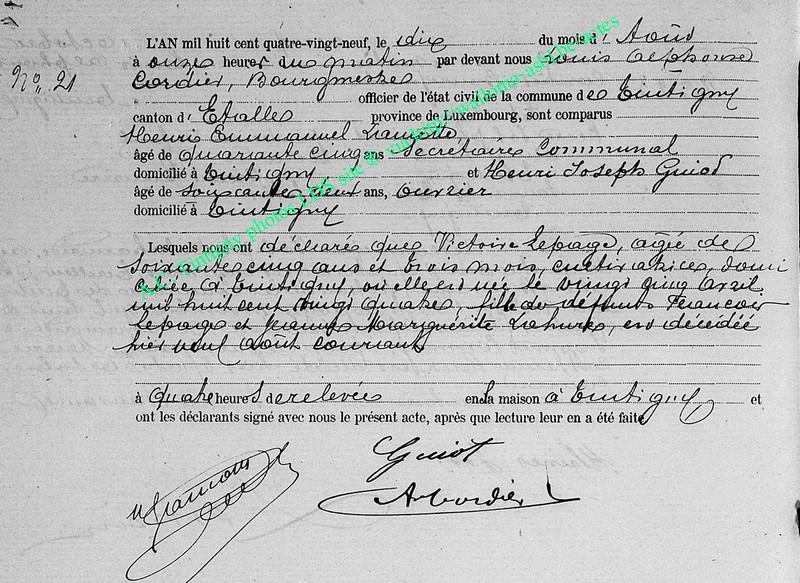 L'AN mil huit cent quatre-vingt-neuf, le dix du mois d'Août
No. 21
à onze heures du matin par devant nous Louis Alphonse
Cordier, Bourgmestre
officier de l'état civil de la commune de Tintigny
canton d'Etalle province de Luxembourg, sont comparus
Henri Emmanuel
âgé de quarante cinq ans Secrétaire Communal
domicilié à Tintigny, et Henri Joseph Guiot
âgé de soixante deux ans, ouvrier
domicilié à Tintigny
Lesquels nous ont déclaré que Victoire Lepage, agée de
soixante cinq ans et trois mois, cultivatrice, domi
ciliée à Tintigny, où elle est née le vingt cinq avril
mil huit cent vingt quatre, fille de défunts François
Lepage et Jeanne Marguerite Lahure, est décédée
hier neuf août courant
à quatre heures de relevée en la maison à Tintigny et
ont les déclarants signé avec nous le présent acte, après que lecture leur en a été faite
Guiot
A Cordier